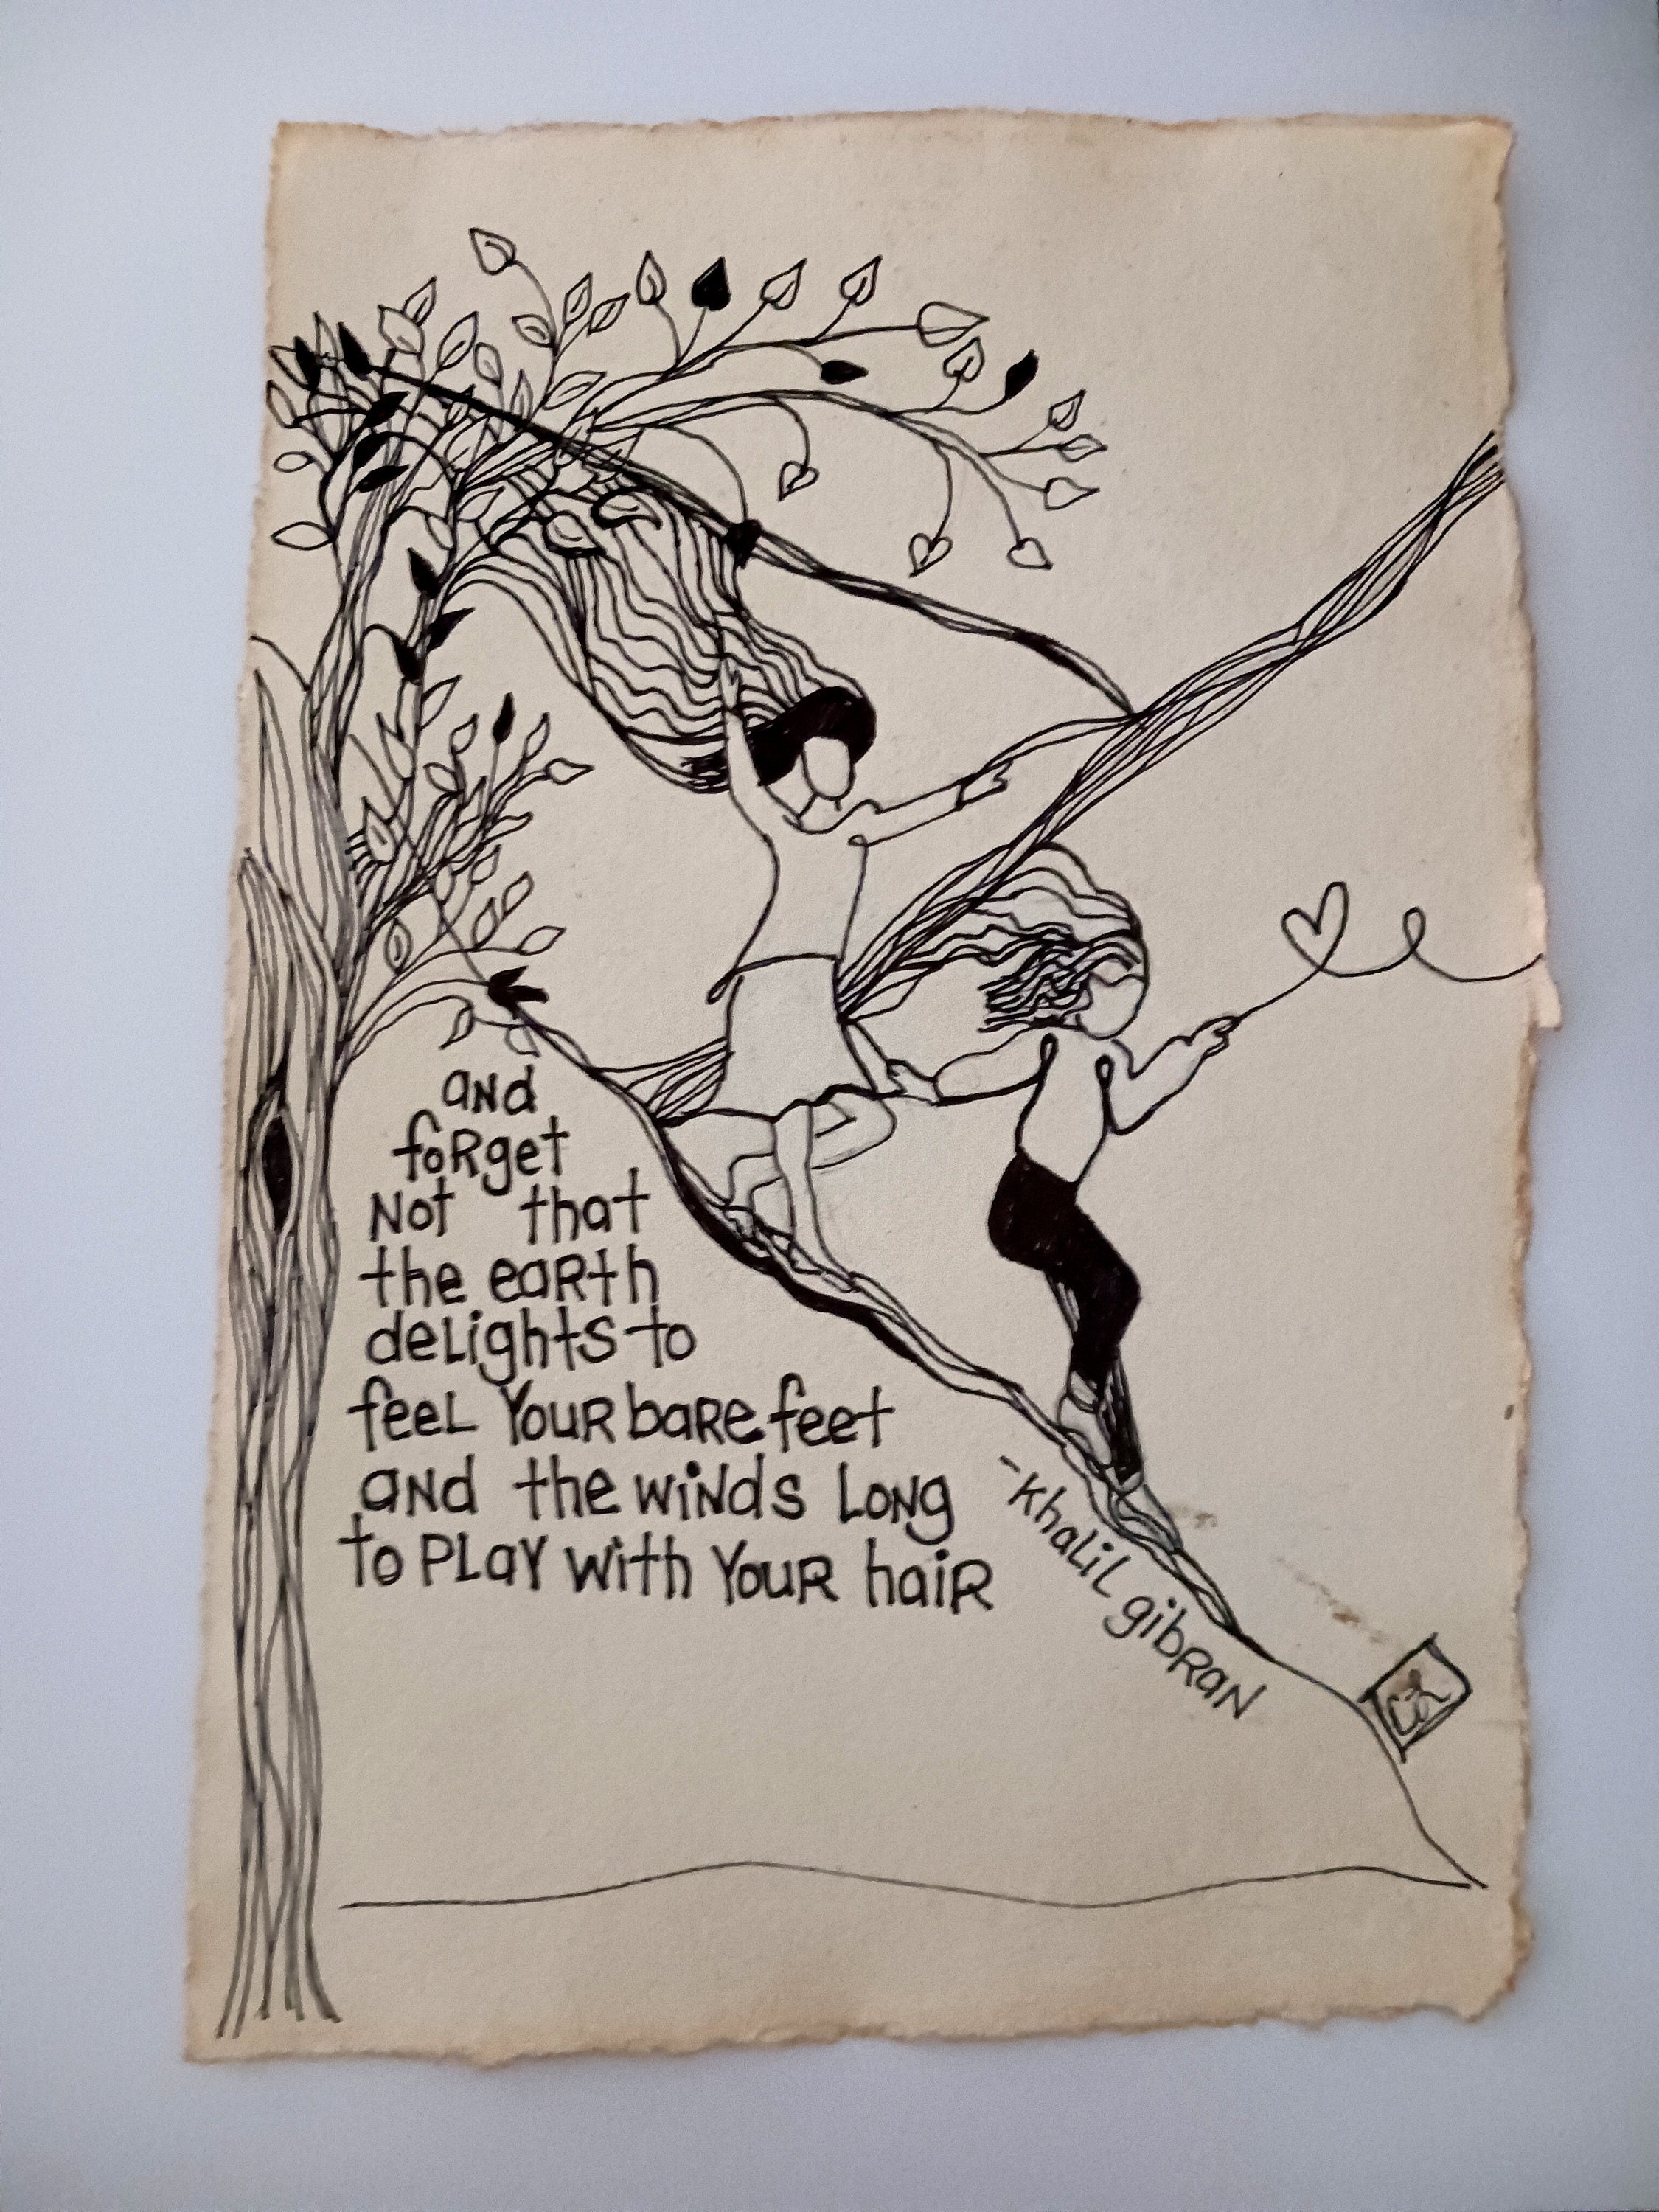 and
forget
Not that
the earth
delights to
feel Your bare feet
and the winds Long
to PLaY with Your hair
-Khalil gibran